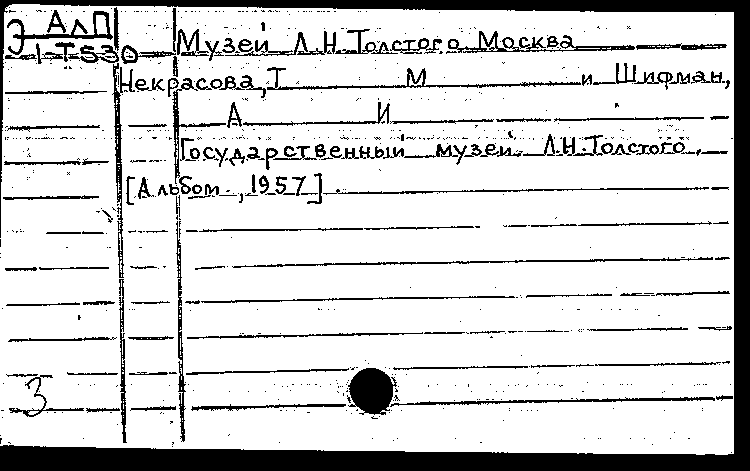 Э АлП
1-Т530 Музей Л.Н.Толстого Москва
Некрасова, Т М и Шифман,
А И
Государственный музей Л.Н.Толстого.
[Альбом, 1957].
3